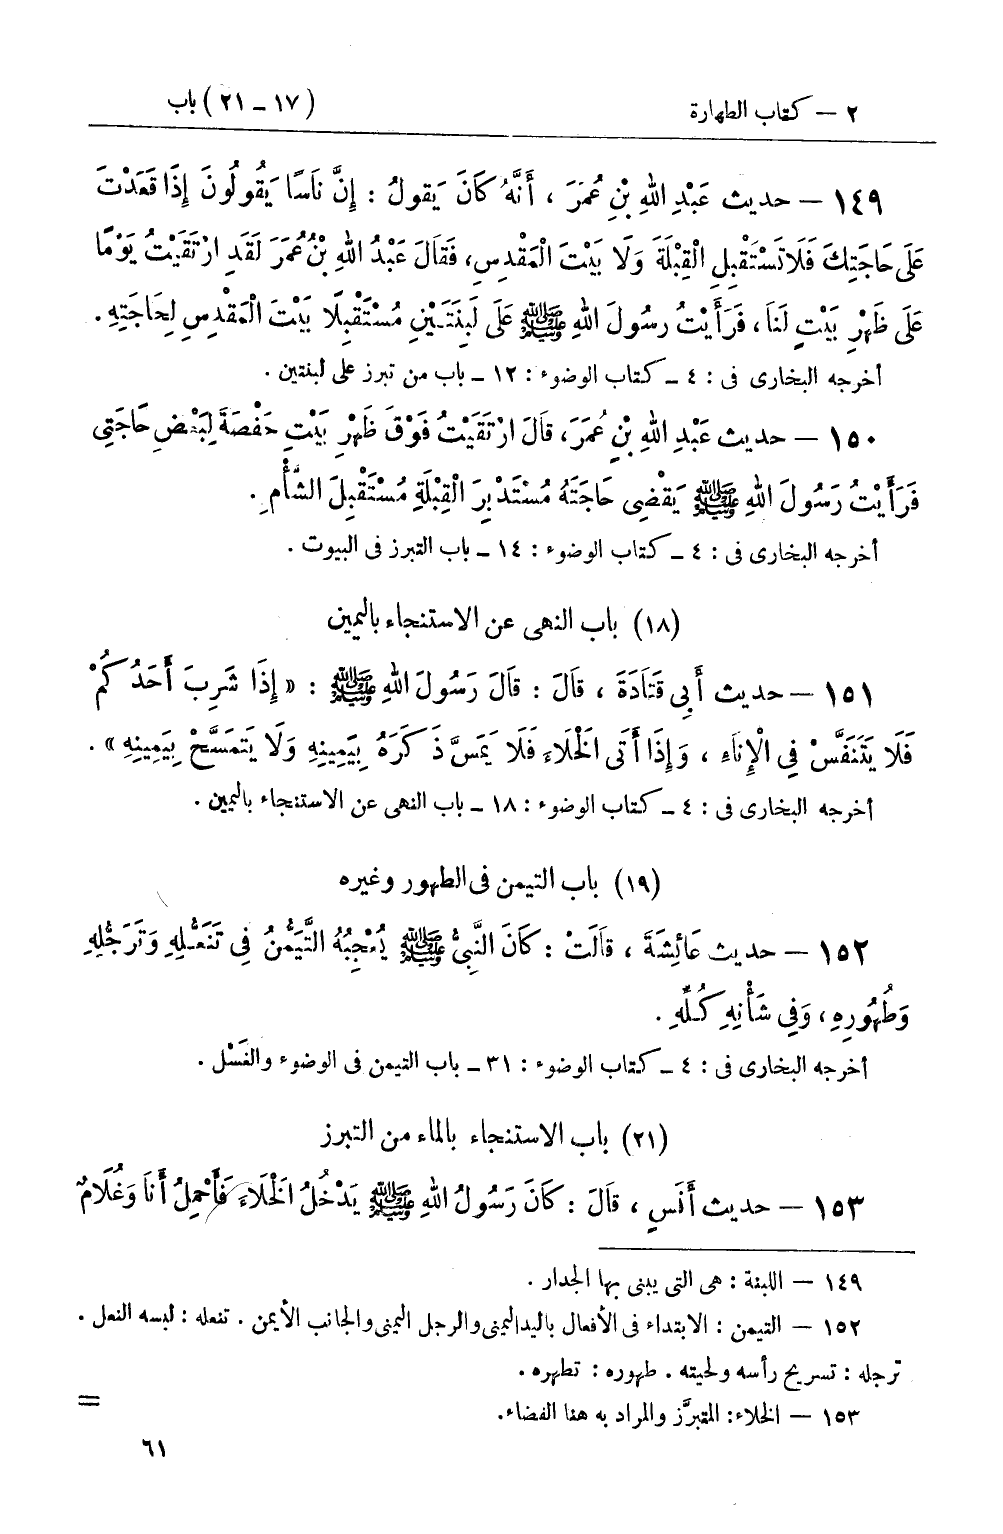 ٢ — كتاب الطهارة (١٧ – ٢١) باب
١٤٩ — حديث عَبْدِ اللهِ بْنِ عُمَرَ ، أَنَّهُ كَانَ يَقولُ : إِنَّ نَاسًا يَقُولُونَ إِذَا قَعَدْتَ
عَلَى حَاجَتِكَ فَلَا تَسْتَقْبِلِ الْقِبْلَةَ وَلَا بَيْتَ الْمَقْدِسِ، فَقَالَ عَبْدُ اللهِ بْنُ عُمَرَ لَقَدِ ارْتَقَيْتُ يَوْمًا
عَلَى ظَهْرِ بَيْتٍ لَنَا، فَرَأَيْتُ رسُولَ اللهِ ﷺ عَلَى لَبِنَتَيْنِ مُسْتَقْبِلًا بَيْتَ الْمَقْدِسِ لِحَاجَتِهِ.
أخرجه البخارى فى : ٤ ـ كتاب الوضوء : ١٢ ـ باب من تبرز على لبنتين .
١٥٠ — حديث عَبْدِ اللهِ بْنِ عُمَرَ، قَالَ ارْتَقَيْتُ فَوْقَ ظَهْرِ بَيْتِ حَفْصَةَ لِبَعْضِ حَاجَتِى
فَرَأَيْتُ رَسُولَ اللهِ ﷺ يَقْضِى حَاجَتَهُ مُسْتَدْبِرَ الْقِبْلَةِ مُسْتَقْبِلَ الشَّأْمِ.
أخرجه البخارى فى : ٤ ـ كتاب الوضوء : ١٤ ـ باب التبرز فى البيوت .
(١٨) باب النهى عن الاستنجاء باليمين
١٥١ — حديث أَبِى قَتَادَةَ ، قَالَ : قَالَ رَسُولَ اللهِ ﷺ : « إِذَا شَرِبَ أَحَدُكُمْ
فَلَا يَتَنَفَّسْ فِى الْإِنَاءِ ، وَإِذَا أَتَى الْخَلَاءَ فَلَا يَمَسَّ ذَكَرَهُ بِيَمِينِهِ وَلَا يَتَمَسَّحْ بِيَمِينِهِ » .
أخرجه البخارى فى : ٤ ـ كتاب الوضوء : ١٨ ـ باب النهى عن الاستنجاء باليمين .
(١٩) باب التيمن فى الطهور وغيره
١٥٢ — حديث عَائِشَةَ ، قَالَتْ : كَانَ النَّبِىُّ ﷺ يُعْجِبُهُ التَّيَمُّنُ فِى تَنَعُّلِهِ وَتَرَجُّلِهِ
وَطُهُورِهِ، وَفِى شَأْنِهِ كُلِّهِ .
أخرجه البخارى فى : ٤ ـ كتاب الوضوء : ٣١ ـ باب التيمن فى الوضوء والغَسْل .
(٢١) باب الاستنجاء بالماء من التبرز
١٥٣ — حديث أَنَسٍ ، قَالَ : كَانَ رَسُولُ اللهِ ﷺ يَدْخُلُ الْخَلَاءَ فَأَحْمِلُ أَنَا وَغُلَامٌ
١٤٩ — اللبنة : هى التى يبنى بها الجدار .
١٥٢ — التيمن : الابتداء فى الأفعال باليد اليمنى والرجل اليمنى والجانب الأيمن . تنعله : لبسه النعل .
ترجله : تسريح رأسه ولحيته . طهوره : تطهره .
١٥٣ — الخلاء: المتبرَّز والمراد به هنا الفضاء.
=
٦١